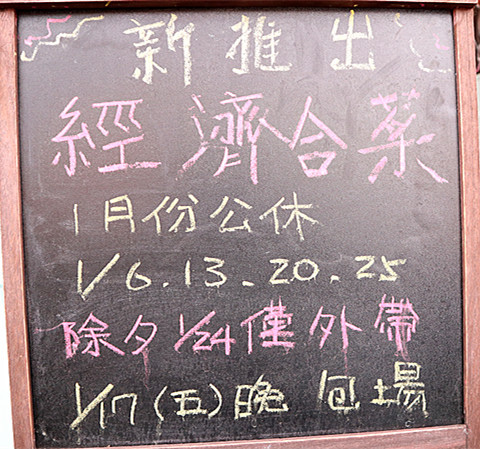 新推出
經濟合菜
1月份公休
1/6.13.20.25
除夕1/24僅外帶
1/17(五)晚 包場